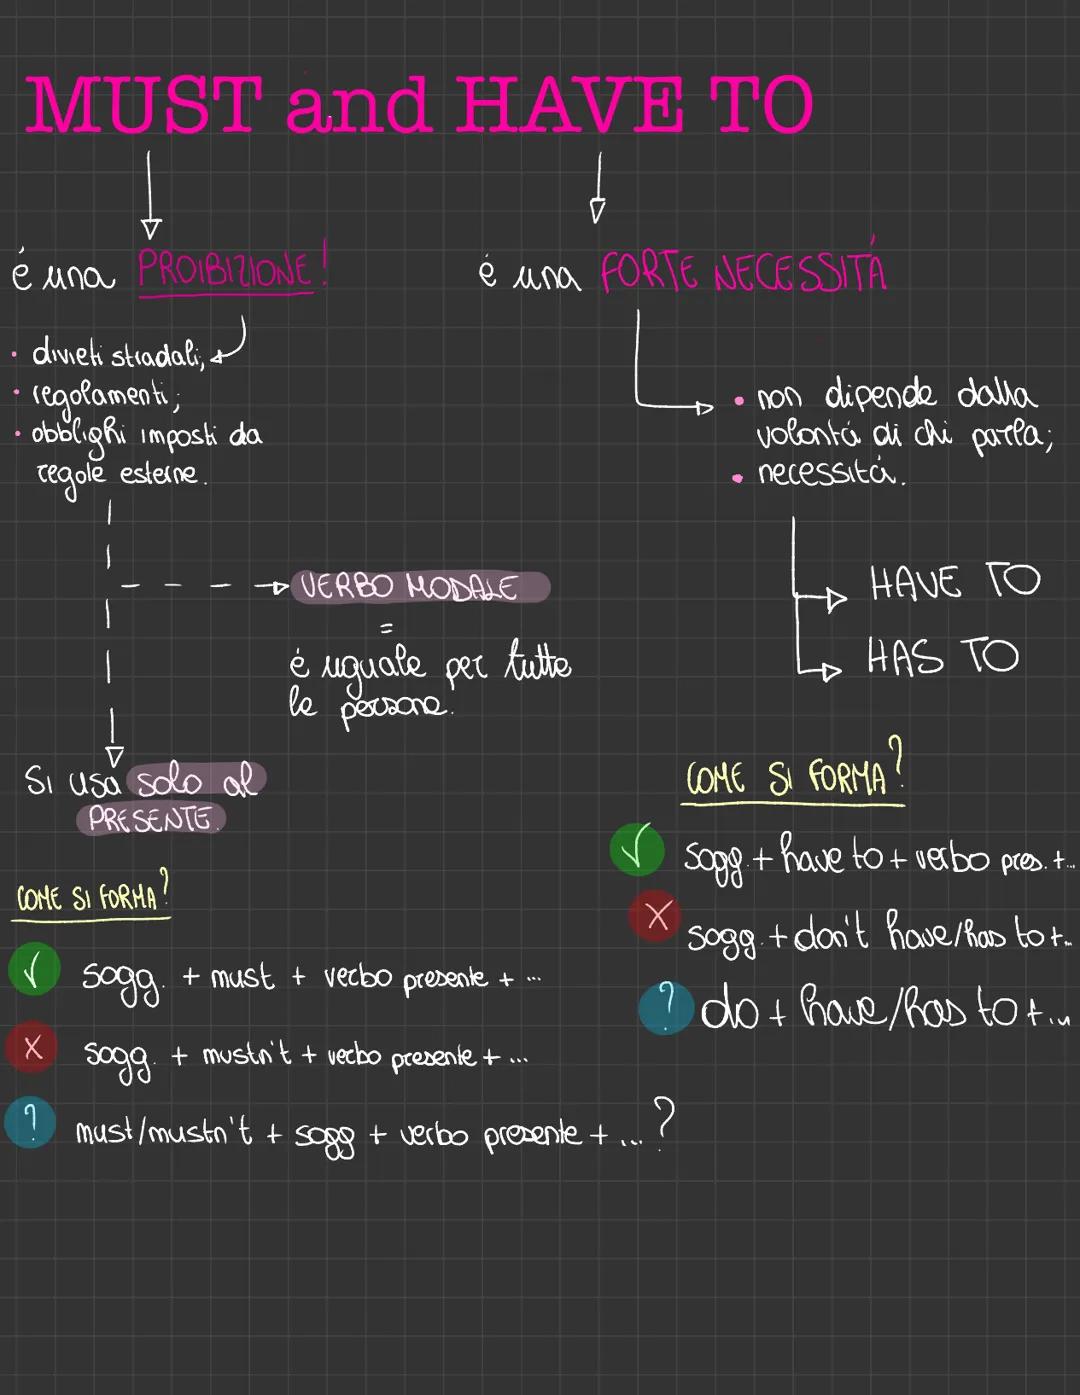 MUST and HAVE TO
é una PROIBIZIONE!
• divieti stradali;
• regolamenti;
• obblighi imposti da
regole esterne.
VERBO MODALE
=
é uguale per tutte
le persone.
Si usa solo al
PRESENTE.
COME SI FORMA?
√ sogg. + must + verbo presente + ...
X sogg. + mustn't + verbo presente + ...
? must/mustn't + sogg + verbo presente + ... ?
é una FORTE NECESSITÁ
• non dipende dalla
volontá di chi parla;
• necessitá.
HAVE TO
HAS TO
COME SI FORMA?
√ sogg. + have to + verbo pres. + ...
X sogg. + don't have/has to + ...
? do + have/has to + ...